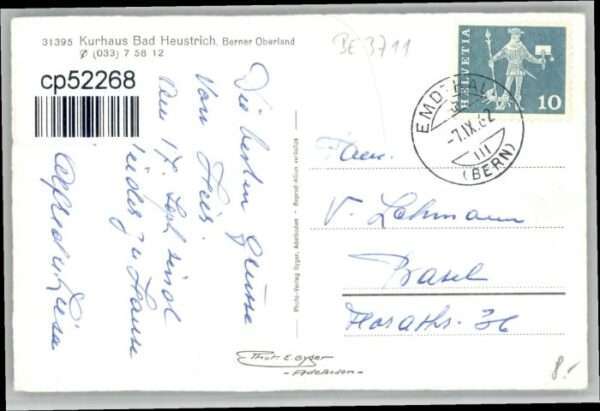 31395 Kurhaus Bad Heustrich, Berner Oberland
✆ (033) 7 58 12
cp52268
BE 3711
HELVETIA
10
-7.IX.62
III
(BERN)
Die besten Grüsse
von hier.
Am 17. Sept. sind
wieder zu Hause
Photo-Verlag Gyger, Adelboden - Reproduktion verboten
Fam.
V. Lehmann
Basel
36
Phot. E. Gyger
- Adelboden -
8.-